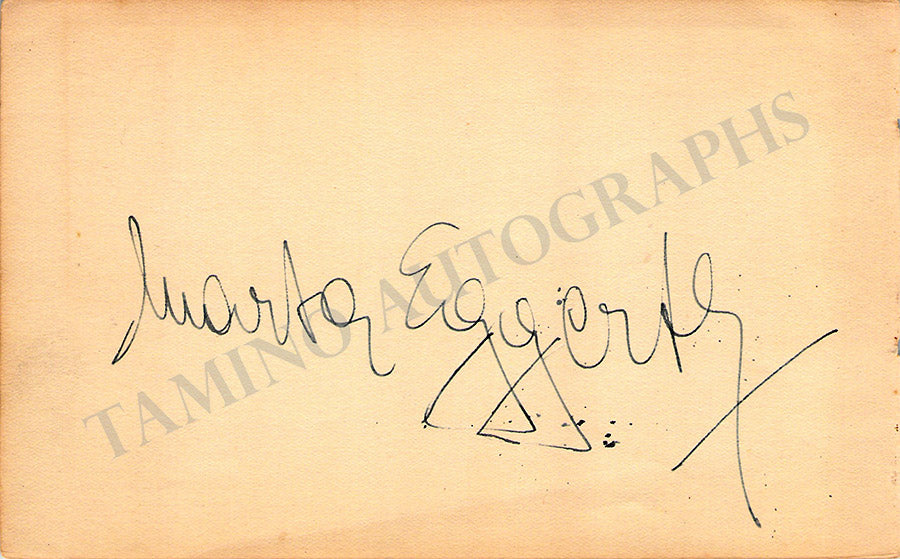 TAMINO AUTOGRAPHS
Marta Eggerth